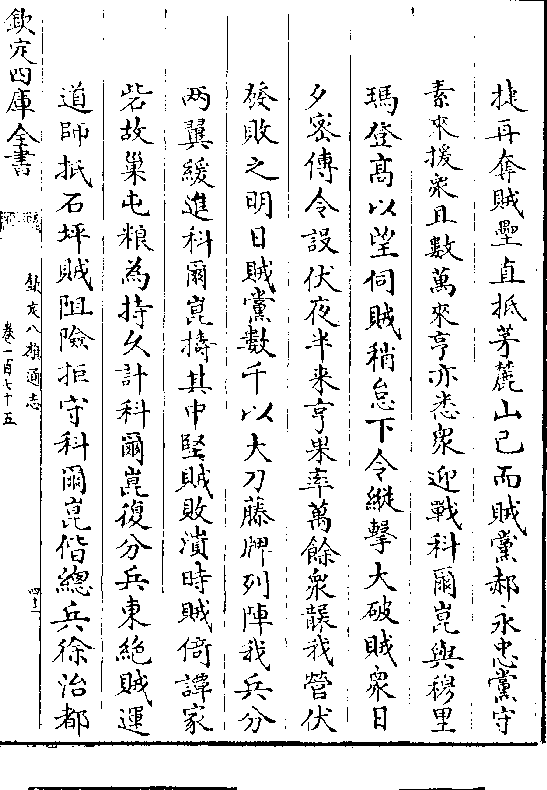 捷再奪賊壘直抵茅麓山已而賊黨郝永忠黨守
素來援衆且數萬來亨亦悉衆迎戰科爾崑與穆里
瑪登高以望伺賊稍怠下令縱擊大破賊衆日
夕密傳令設伏夜半来亨果率萬餘衆襲我營伏
發敗之明日賊黨數千以大刀藤牌列陣我兵分
两翼緩進科爾崑擣其中堅賊敗潰時賊倚譚家
砦故巢屯粮為持久計科爾崑復分兵東絶賊運
道師抵石坪賊阻險拒守科爾崑偕總兵徐治都
欽定四庫全書
欽定八旗通志
卷一百七十五